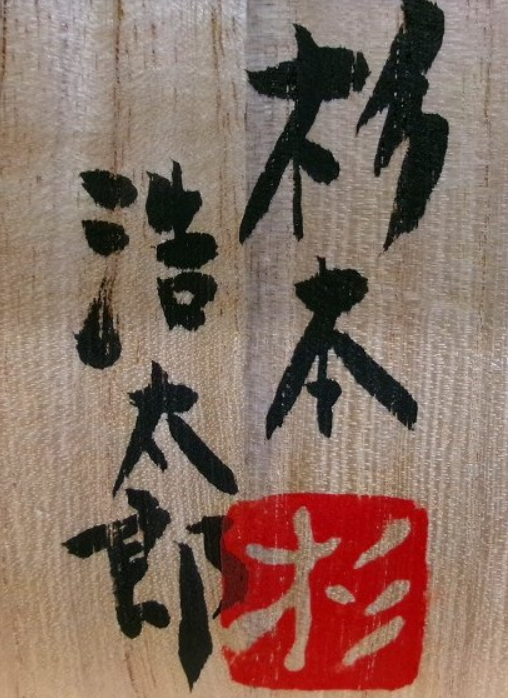 杉本
浩太郎
杉